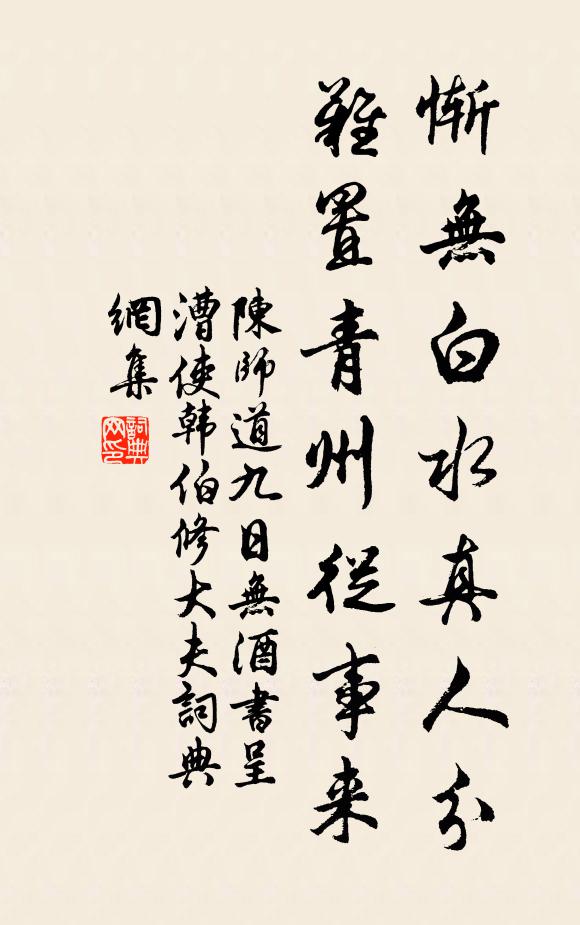 慚無白水真人分
難置青州從事来
陳師道九日無酒書呈
漕使韓伯修大夫詞典
網集
詞典
网印